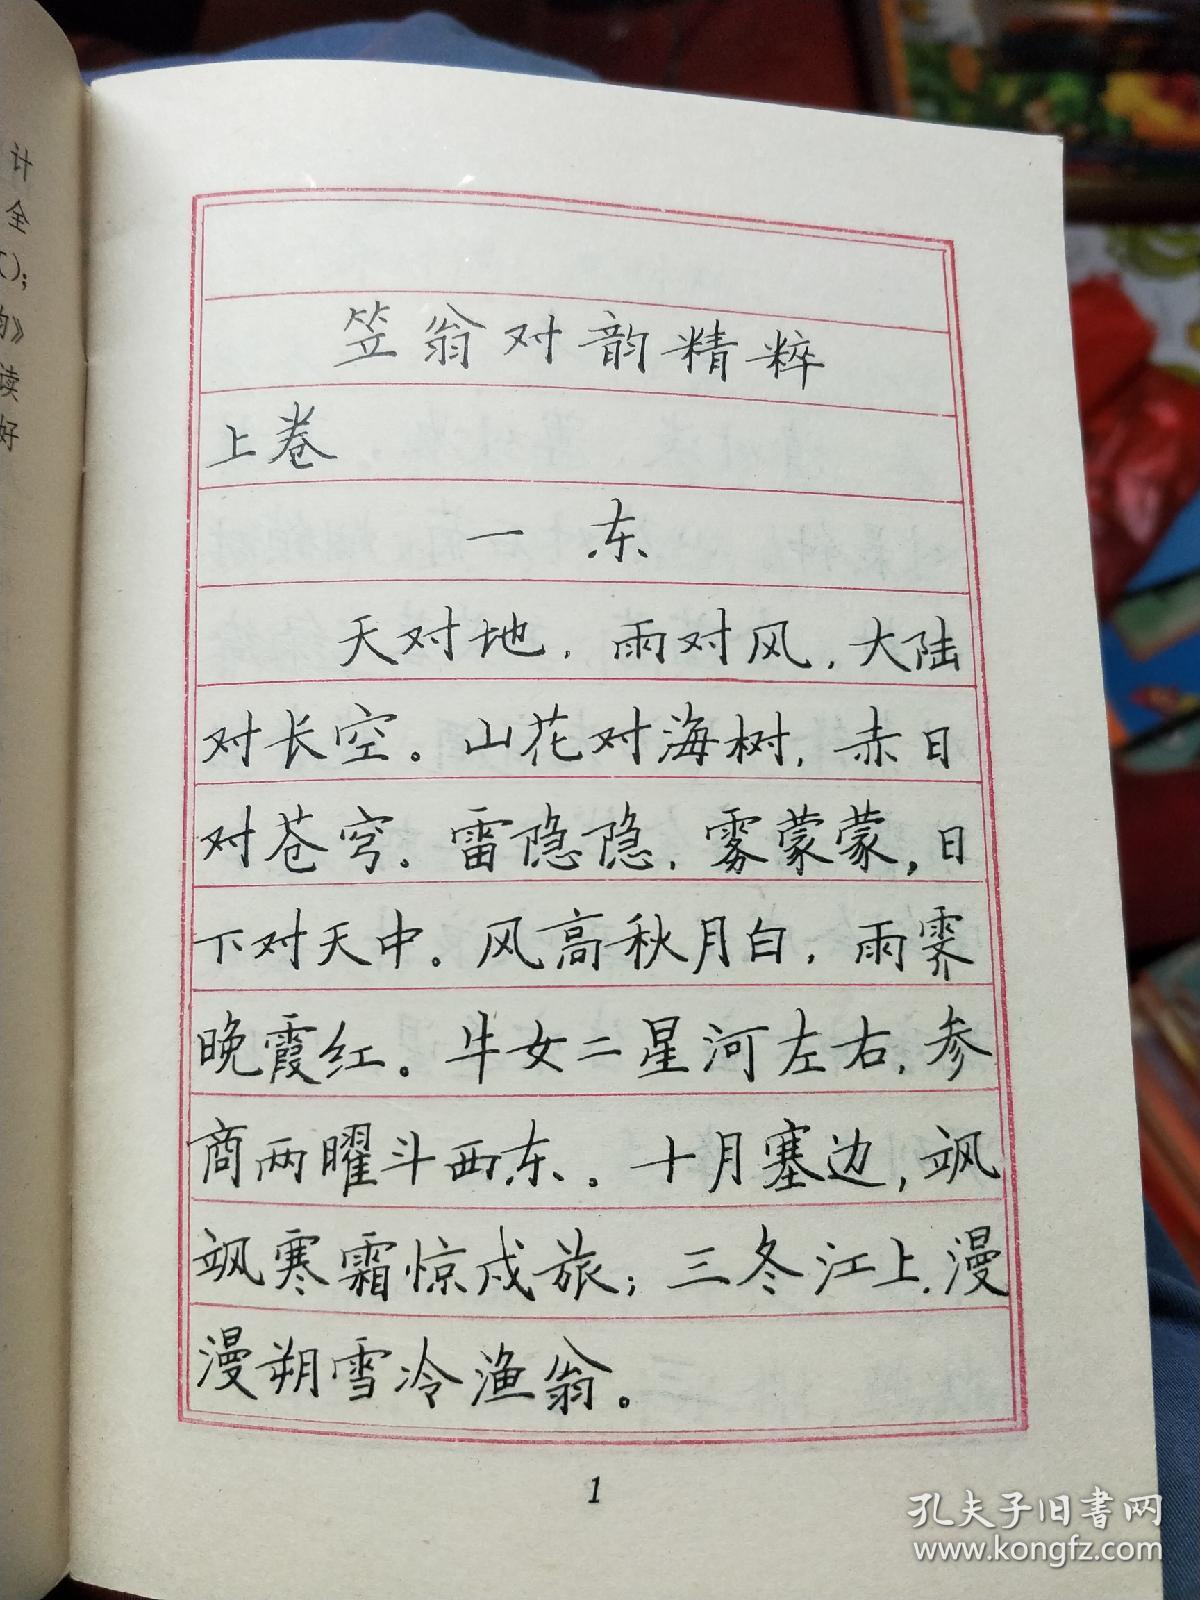 计
全
);
》
读
好
笠翁对韵精粹
上卷
一 东
天对地，雨对风，大陆
对长空。山花对海树，赤日
对苍穹。雷隐隐，雾蒙蒙，日
下对天中。风高秋月白，雨霁
晚霞红。牛女二星河左右，参
商两曜斗西东。十月塞边，飒
飒寒霜惊戍旅；三冬江上，漫
漫朔雪冷渔翁。
1
孔夫子旧书网
www.kongfz.com